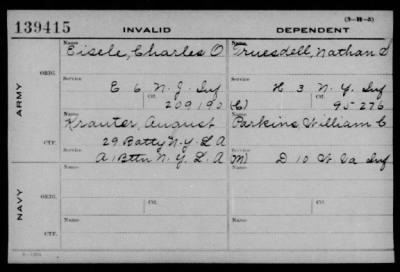 (3-H-5)
139415 INVALID DEPENDENT
Name Name
Eisele, Charles O Truesdell, Nathan S
ORIG. Service Service
E 6 N. J. Inf H 3 N. Y. Inf
Ctf. Ctf.
209190 (C) 95276
ARMY
Name Name
Krauter, August Parkins William C
CTF. Service Service
29 Batty N. Y. L A
A, Bttn N. Y. L. A (M) D 10 W Va Inf
Name Name
ORIG.
NAVY
Name Name
CTF.